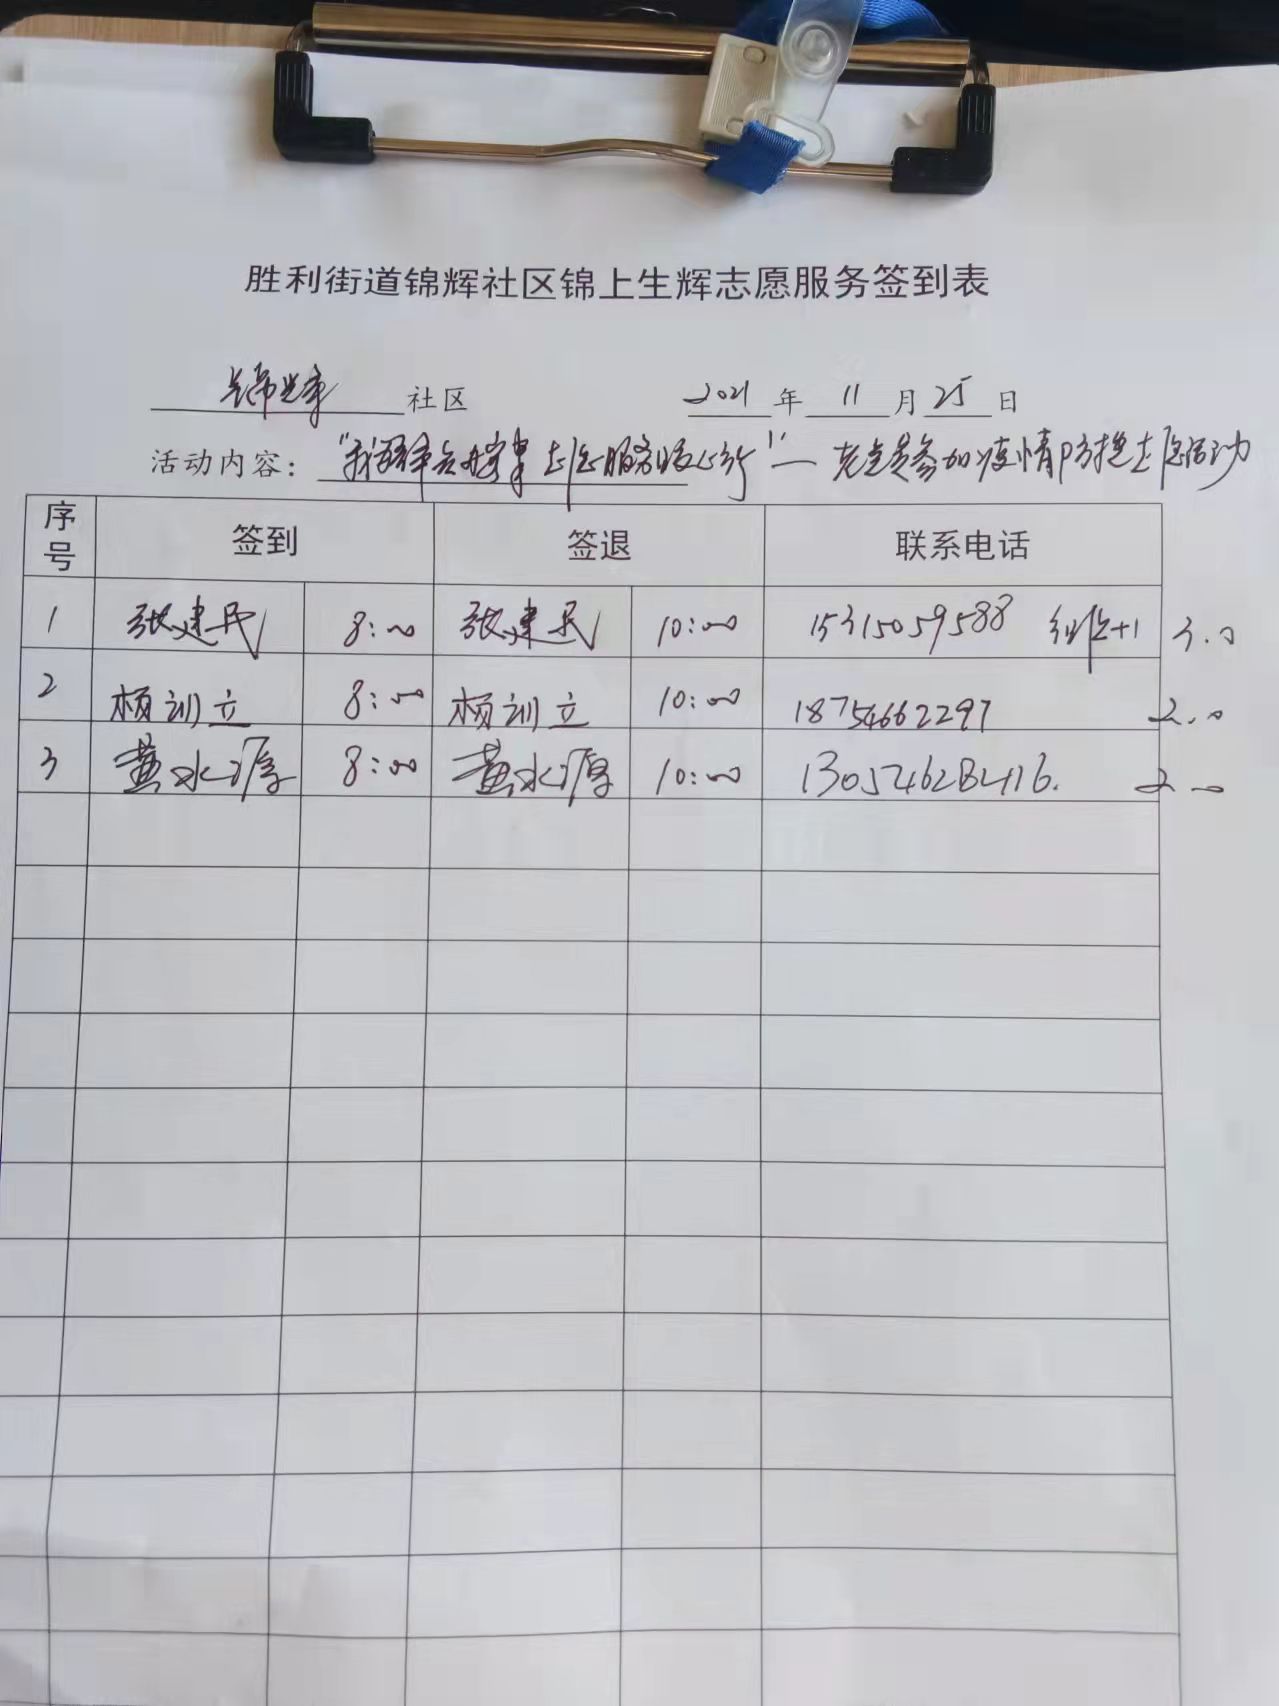 胜利街道锦辉社区锦上生辉志愿服务签到表
锦辉 社区 2021 年 11 月 25 日
活动内容： "我为群众办实事 志愿服务 " — 老党员参加疫情防控志愿活动
序号 签到 签退 联系电话
1 张建民 8:00 张建民 10:00 15315059588 组织+1 3.0
2 杨训立 8:00 杨训立 10:00 18754662297 2.0
3 黄水源 8:00 黄水源 10:00 2.0